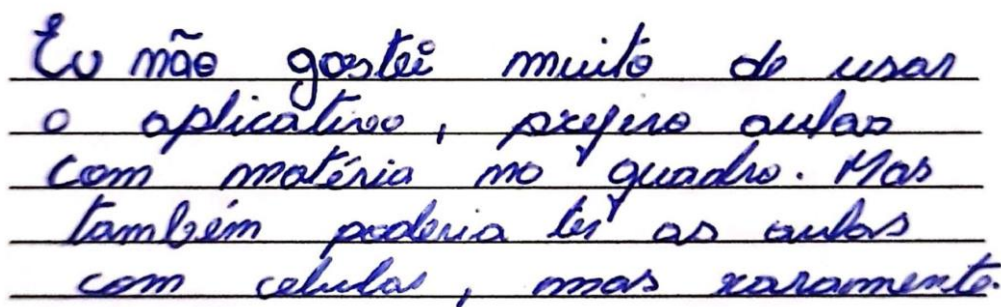 Eu não gostei muito de usar
o aplicativo, prefiro aulas
com matéria no quadro. Mas
também poderia ter as aulas
com celular, mas raramente.